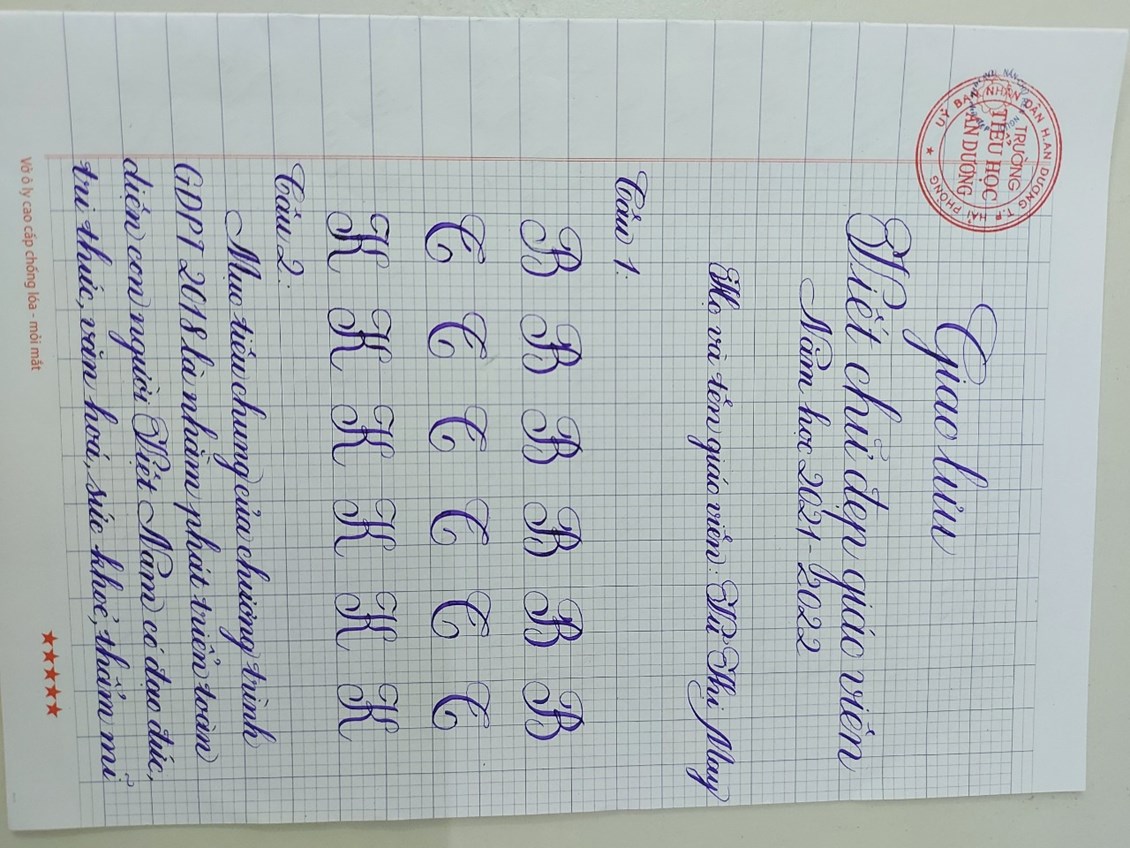 UỶ BAN NHÂN DÂN H.AN DƯƠNG T.P HẢI PHÒNG
TRƯỜNG
TIỂU HỌC
AN DƯƠNG
★
Giao lưu
Viết chữ đẹp giáo viên
Năm học 2021-2022
Họ và tên giáo viên: Thị May
Câu 1:
B B B B B B
C C C C C C
K K K K K K
Câu 2:
Mục tiêu chung của chương trình
GDPT 2018 là nhằm phát triển toàn
diện con người Việt Nam có đạo đức,
tri thức, văn hoá, sức khoẻ, thẩm mĩ
Vở ô ly cao cấp chống lóa - mỏi mắt
★★★★★